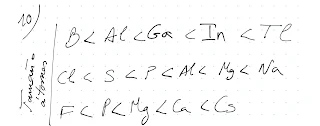 10)
Tamanho
átomos
B < Al < Ga < In < Tl
Cl < S < P < Al < Mg < Na
F < P < Mg < Ca < Cs